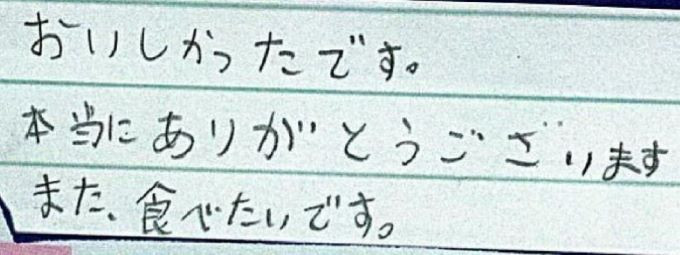 おいしかったです。
本当にありがとうございます
また、食べたいです。